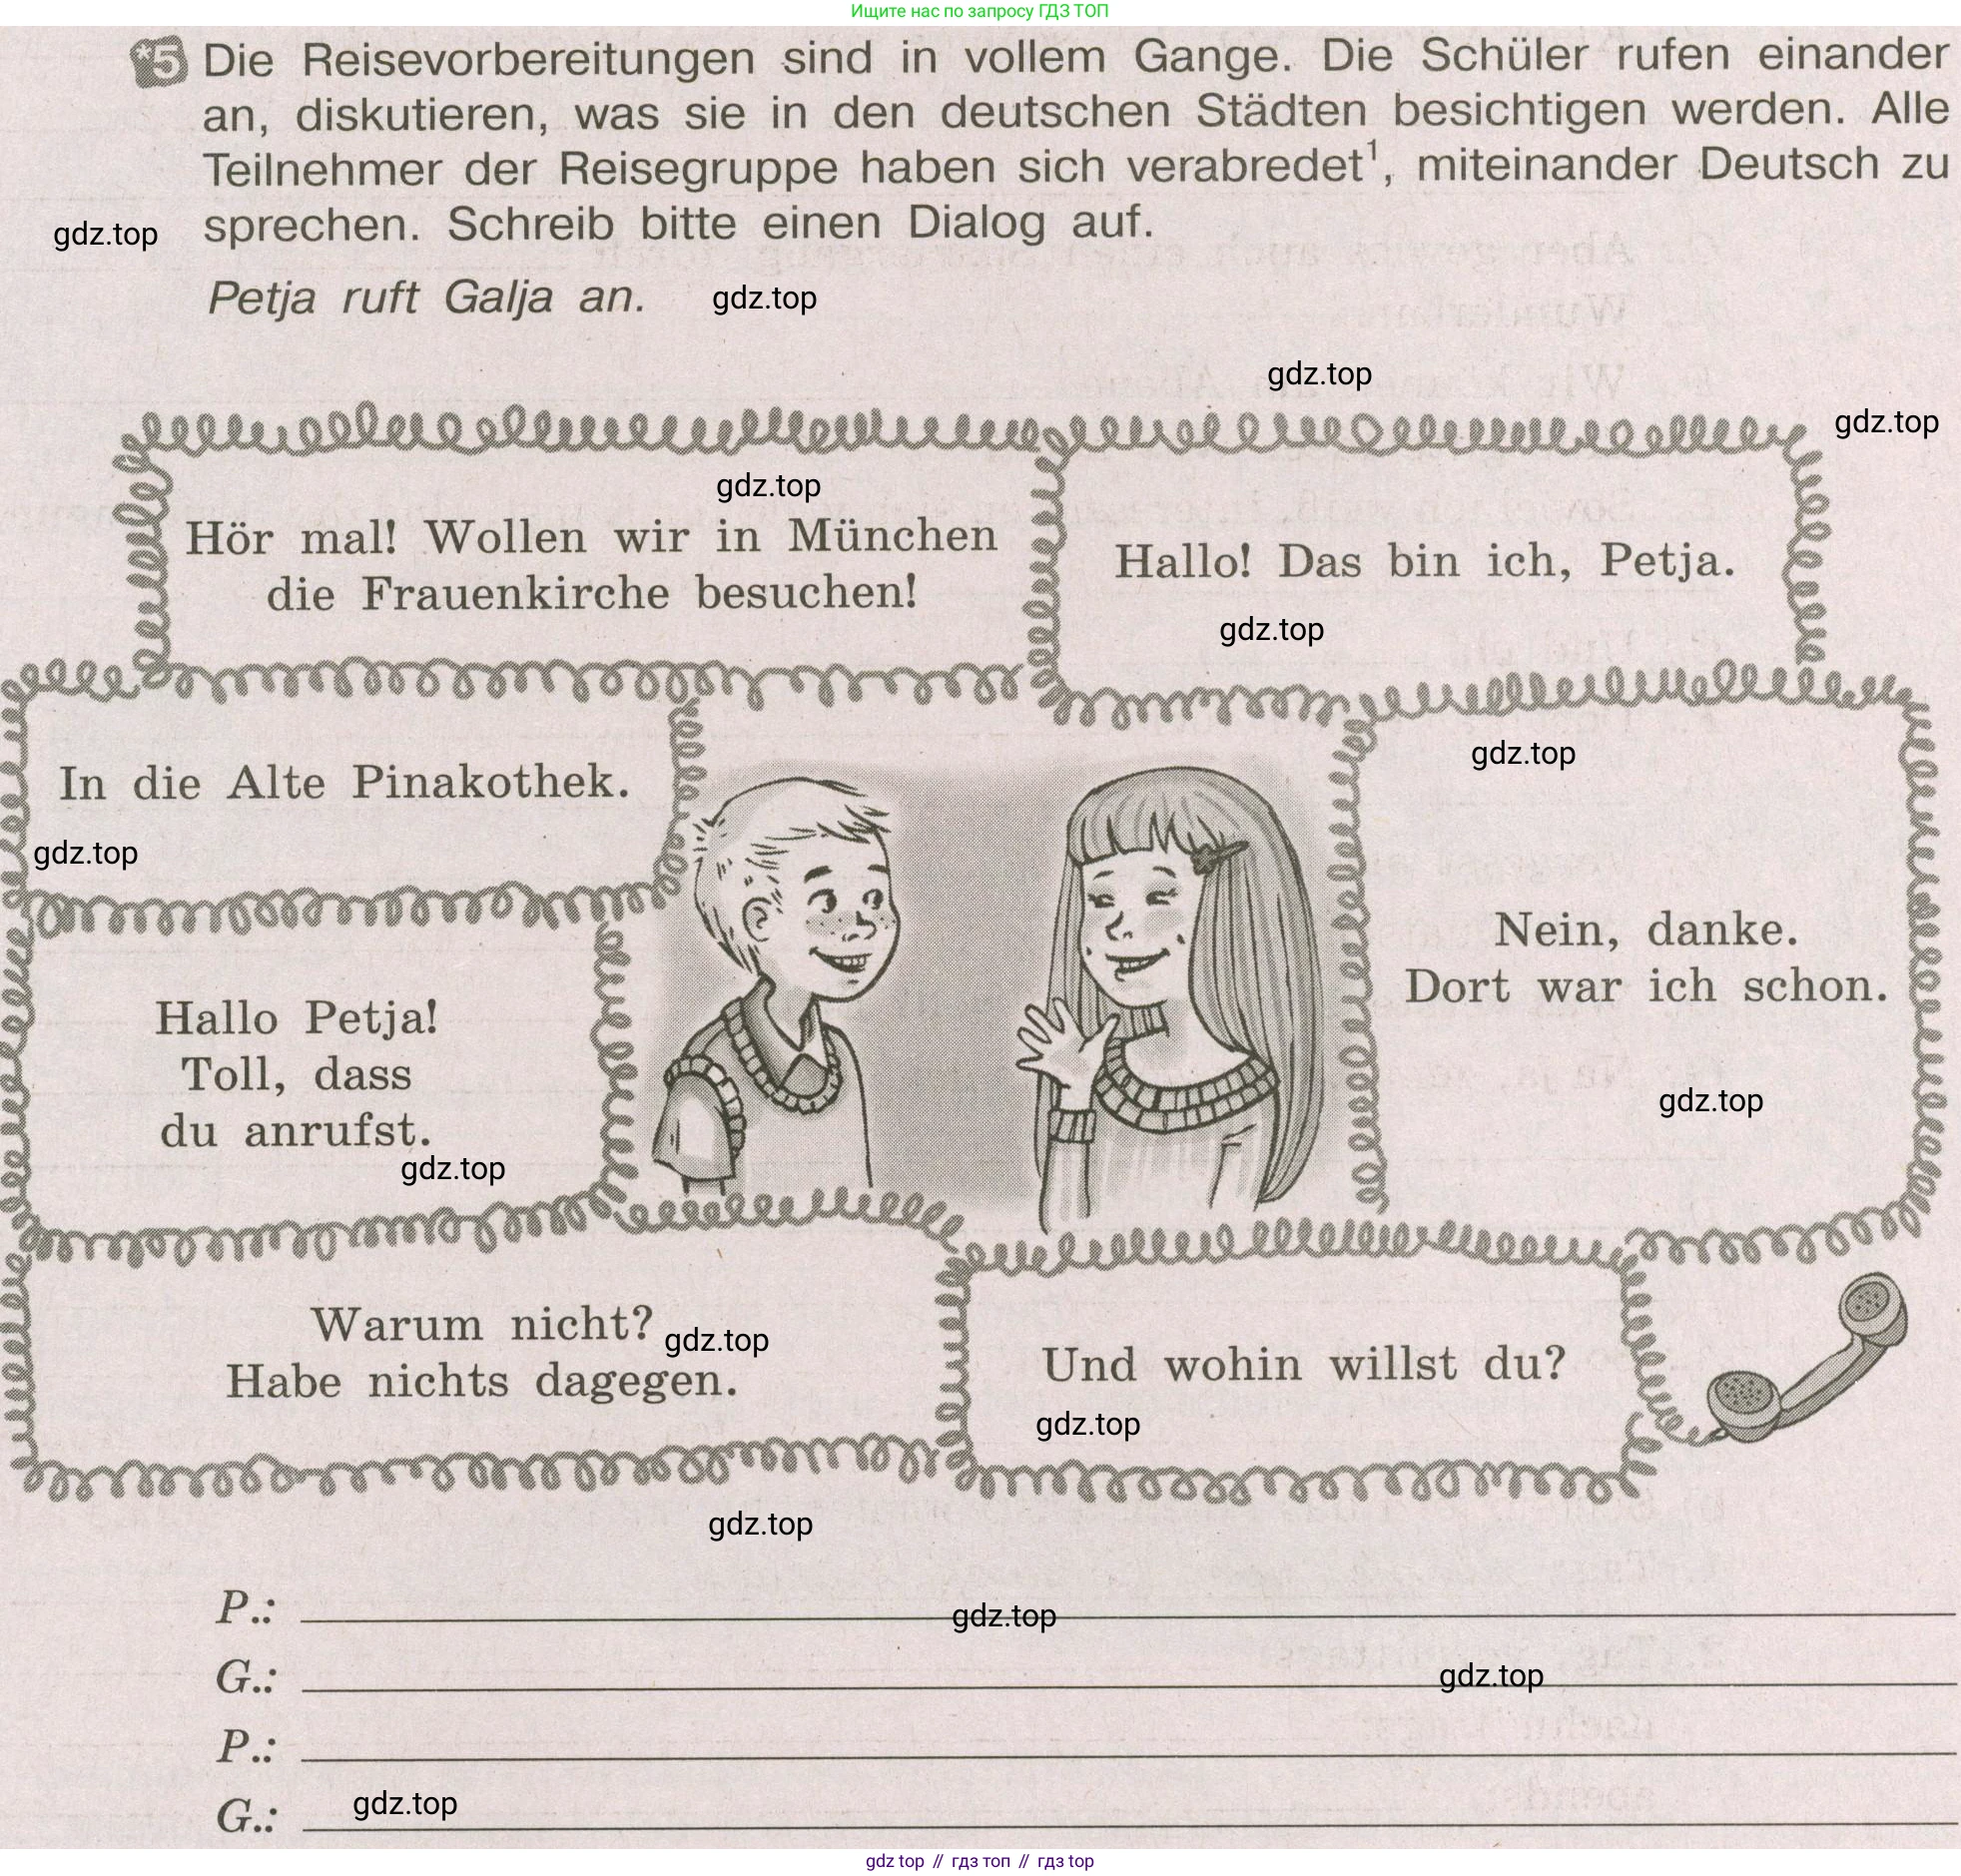 Ищите нас по запросу ГДЗ ТОП
*5 Die Reisevorbereitungen sind in vollem Gange. Die Schüler rufen einander
an, diskutieren, was sie in den deutschen Städten besichtigen werden. Alle
Teilnehmer der Reisegruppe haben sich verabredet¹, miteinander Deutsch zu
sprechen. Schreib bitte einen Dialog auf.
gdz.top
Petja ruft Galja an.
gdz.top
gdz.top
gdz.top
gdz.top
Hör mal! Wollen wir in München
die Frauenkirche besuchen!
Hallo! Das bin ich, Petja.
gdz.top
In die Alte Pinakothek.
gdz.top
gdz.top
Nein, danke.
Dort war ich schon.
gdz.top
Hallo Petja!
Toll, dass
du anrufst.
gdz.top
Warum nicht?
Habe nichts dagegen.
gdz.top
Und wohin willst du?
gdz.top
gdz.top
P.:
gdz.top
G.:
gdz.top
P.:
G.:
gdz.top
gdz top // гдз топ // гдз top